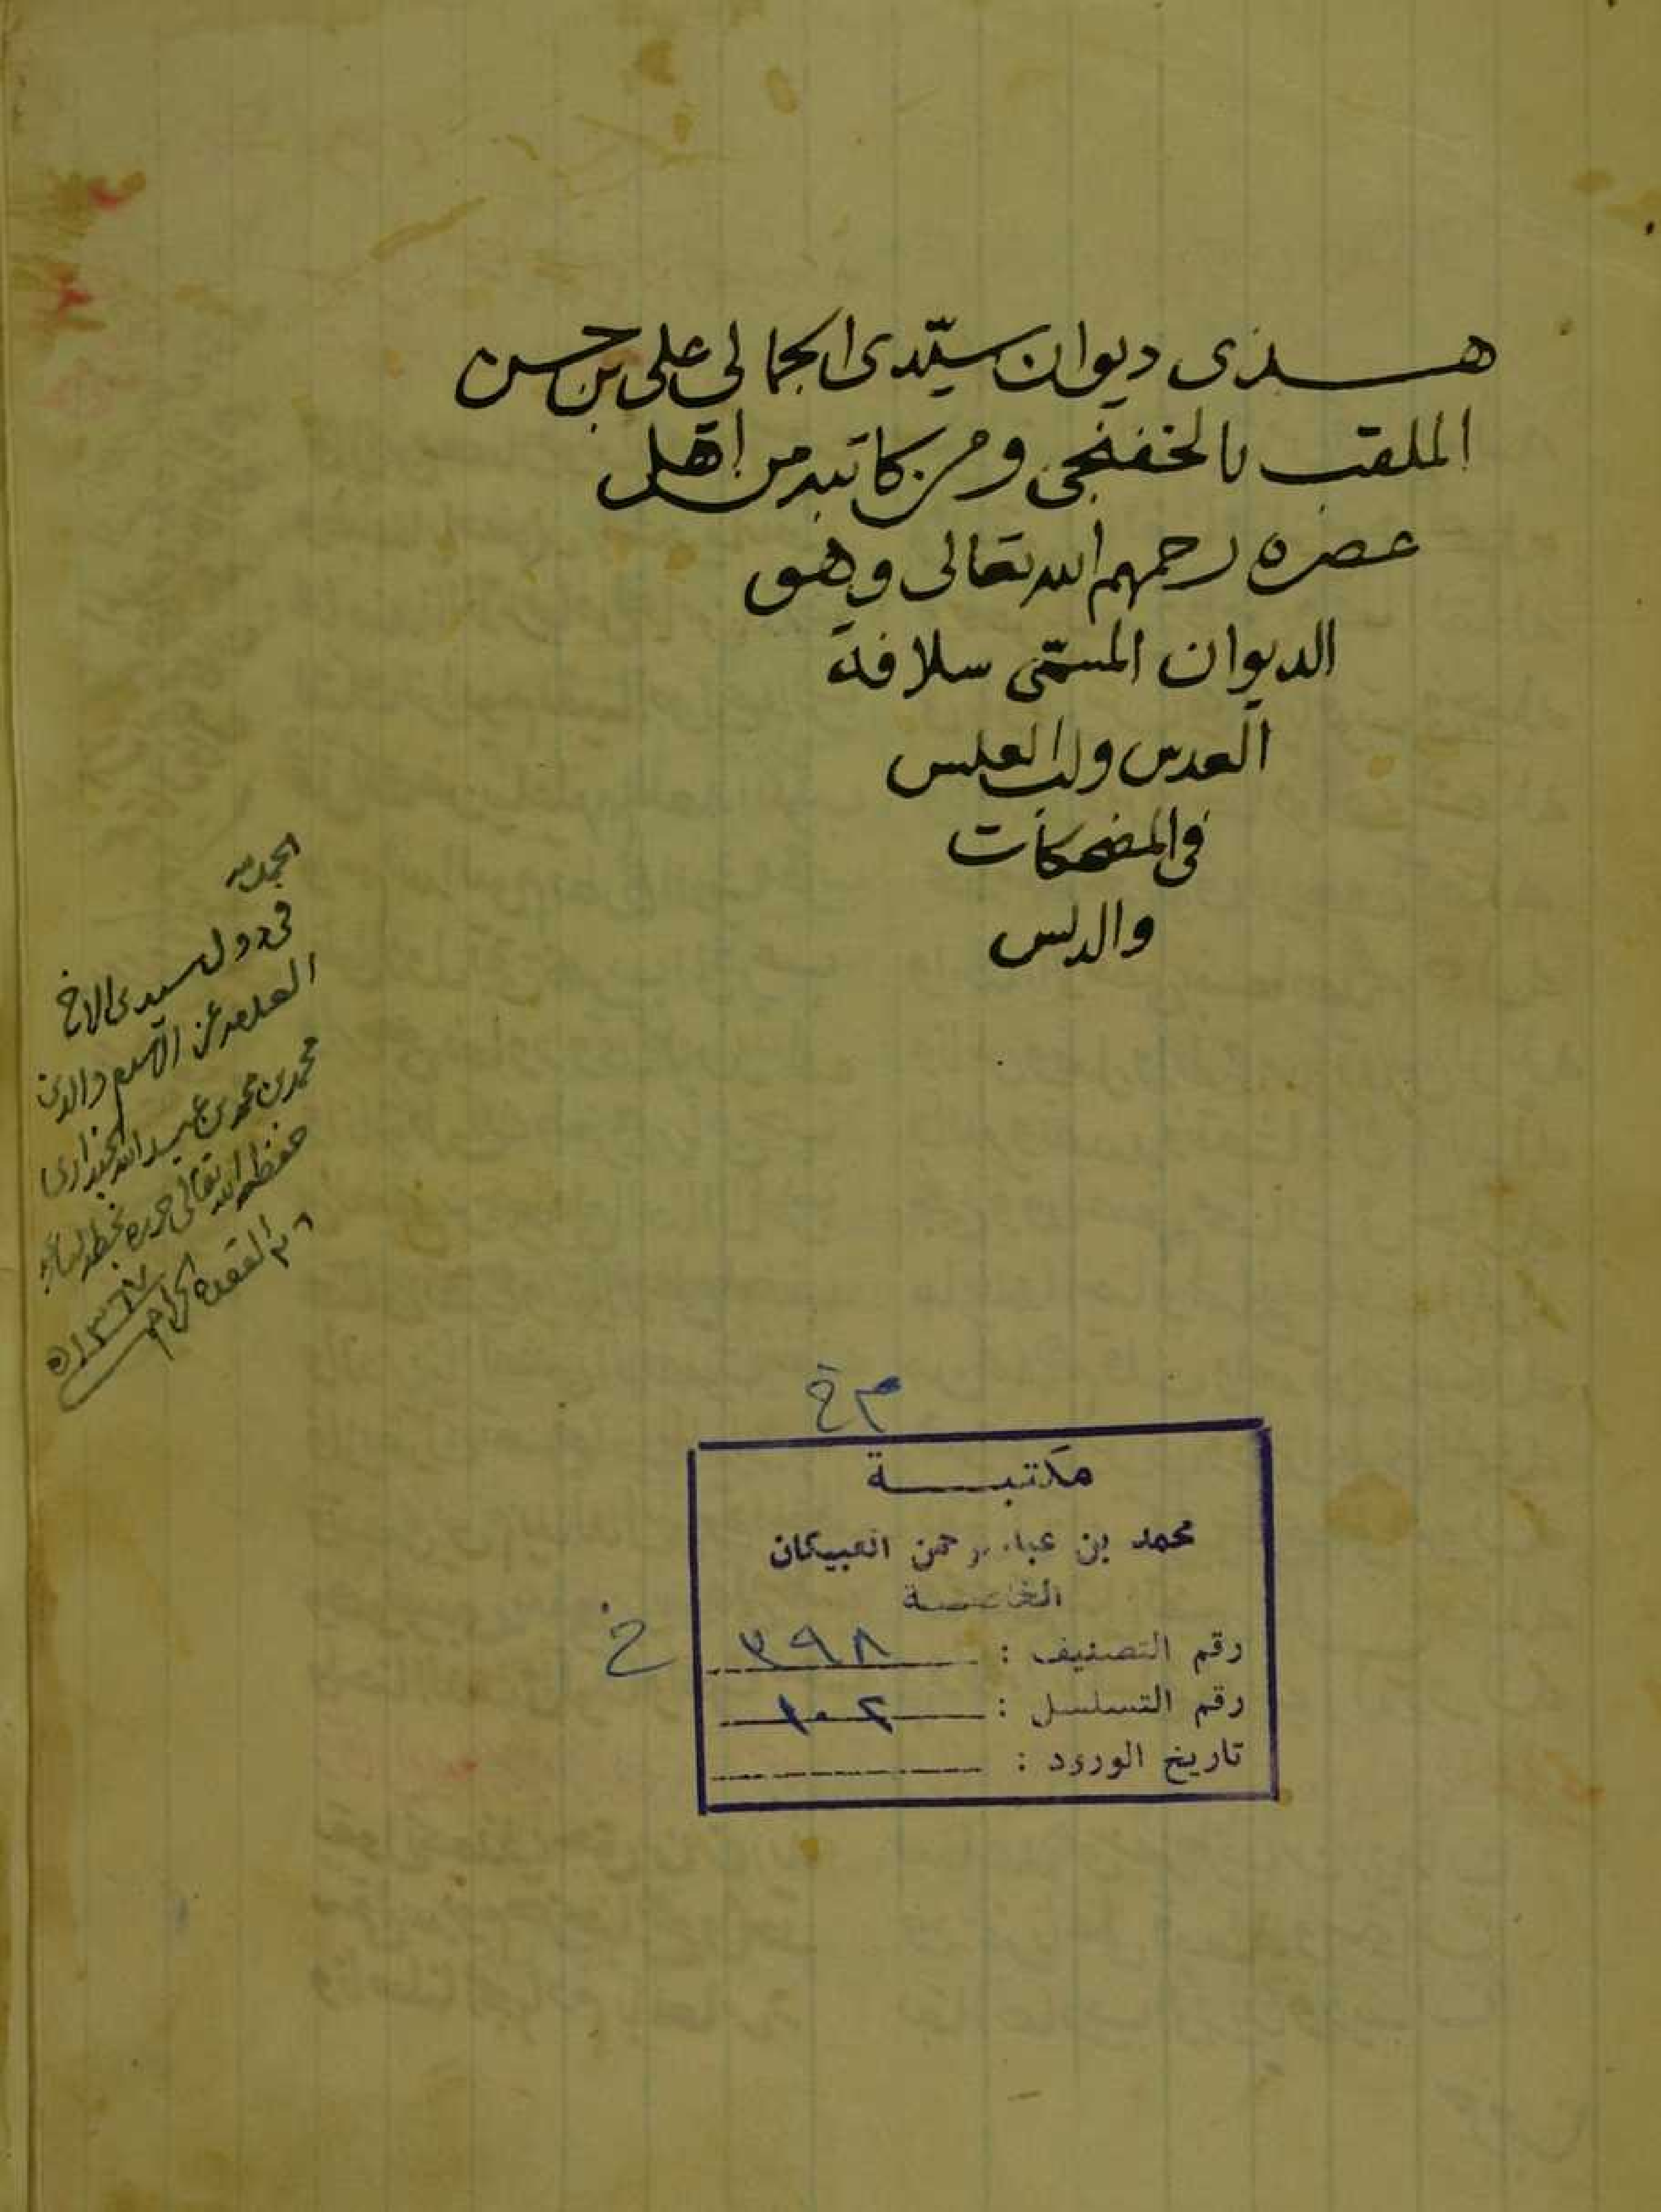 هذى ديوان سيّدى الجمالى على بن حسن
الملقب بالخفنجى ومن كاتبه من اهل
عصره رحمهم الله تعالى وهو
الديوان المسمّى سلافة
العدس ولب العلس
فى المضحكات
والدلس
الحمد لله
سيدى الاخ
عز الاسلام والدين
محمد بن محمد بن عبدالله
حفظه الله تعالى حرره
القعدة الحرام
١٣٦٧ه
م خ
مكتبة
محمد بن عبد الرحمن العبيكان
الخاصة
رقم التصنيف : ٣٩٨ خ
رقم التسلسل : ١٠٢
تاريخ الورود :